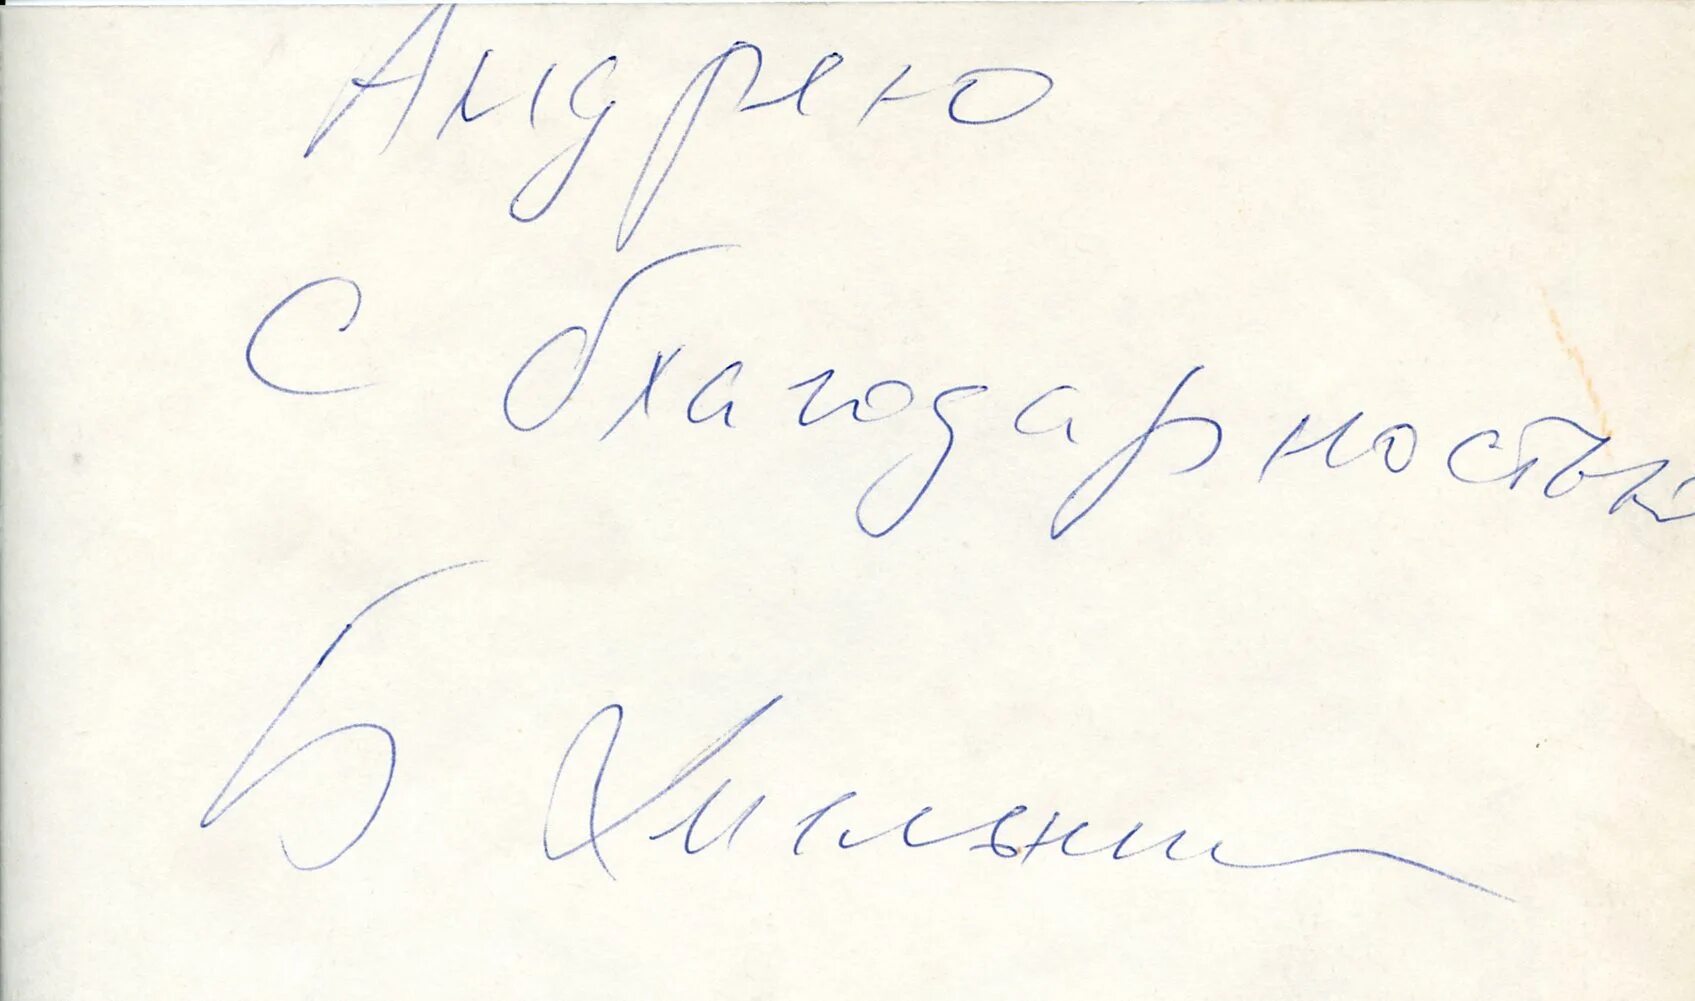 Андрею
С благодарностью
Б Хмельни